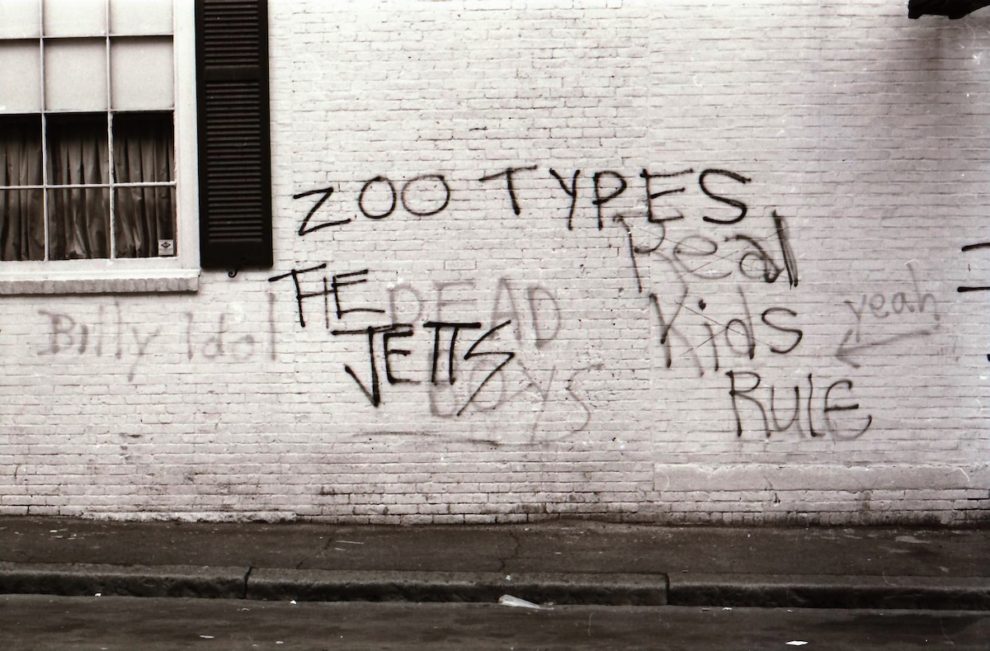 ZOO TYPES
THE
JETTS
DEAD
BOYS
Billy Idol
Real
Kids
RULE
yeah